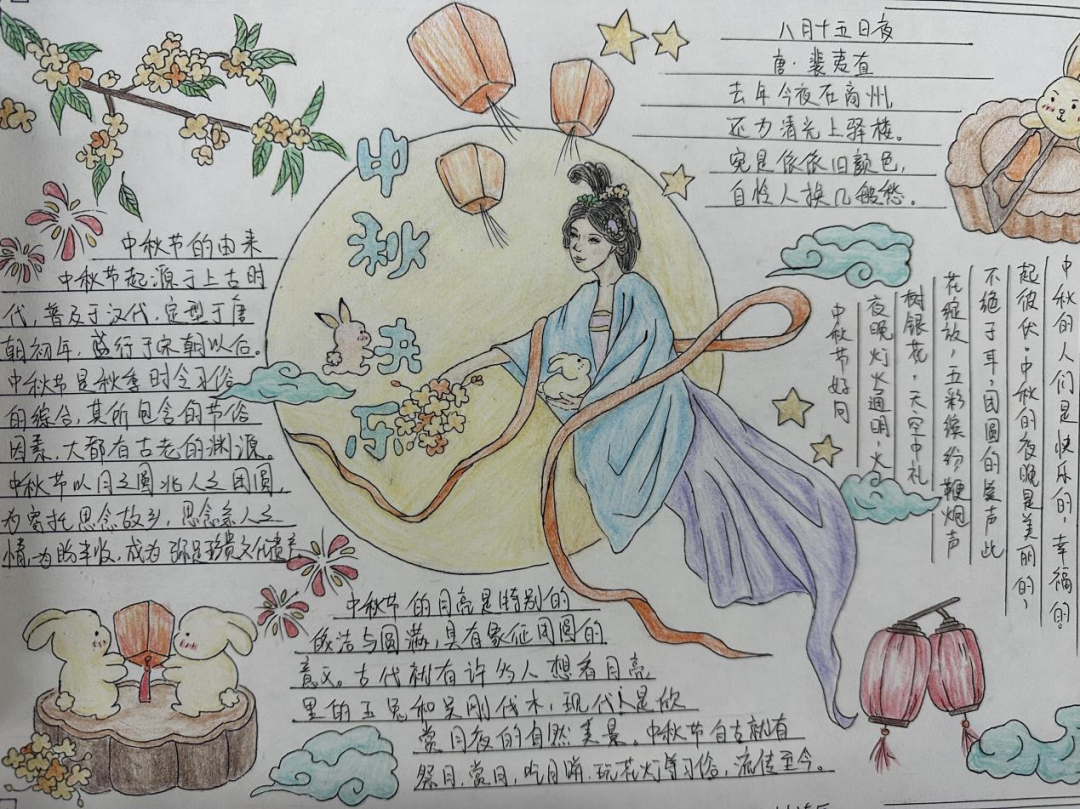 中秋快乐
八月十五日夜
唐·裴夷直
去年今夜在商州,
还为清光上驿楼。
宛是依依旧颜色,
自怜人换几般愁。
中秋节的由来
中秋节起源于上古时
代,普及于汉代,定型于唐
朝初年,盛行于宋朝以后。
中秋节是秋季时令习俗
的综合,其所包含的节俗
因素,大都有古老的渊源。
中秋节以月之圆兆人之团圆,
为寄托思念故乡,思念亲人之
情,为盼丰收,成为弥足珍贵文化遗产
中秋的人们是快乐的,幸福的。
起彼伏。中秋的夜晚是美丽的,
不绝于耳,团圆的笑声此
花绽放,五彩缤纷鞭炮声
树银花,天空中礼
夜晚灯火通明,火
中秋节好闹
中秋节的月亮是特别的
皎洁与圆满,具有象征团圆的
意义。古代就有许多人想看月亮
里的玉兔和吴刚伐木,现代人是欣
赏月夜的自然美景。中秋节自古就有
祭月,赏月,吃月饼,玩花灯等习俗,流传至今。